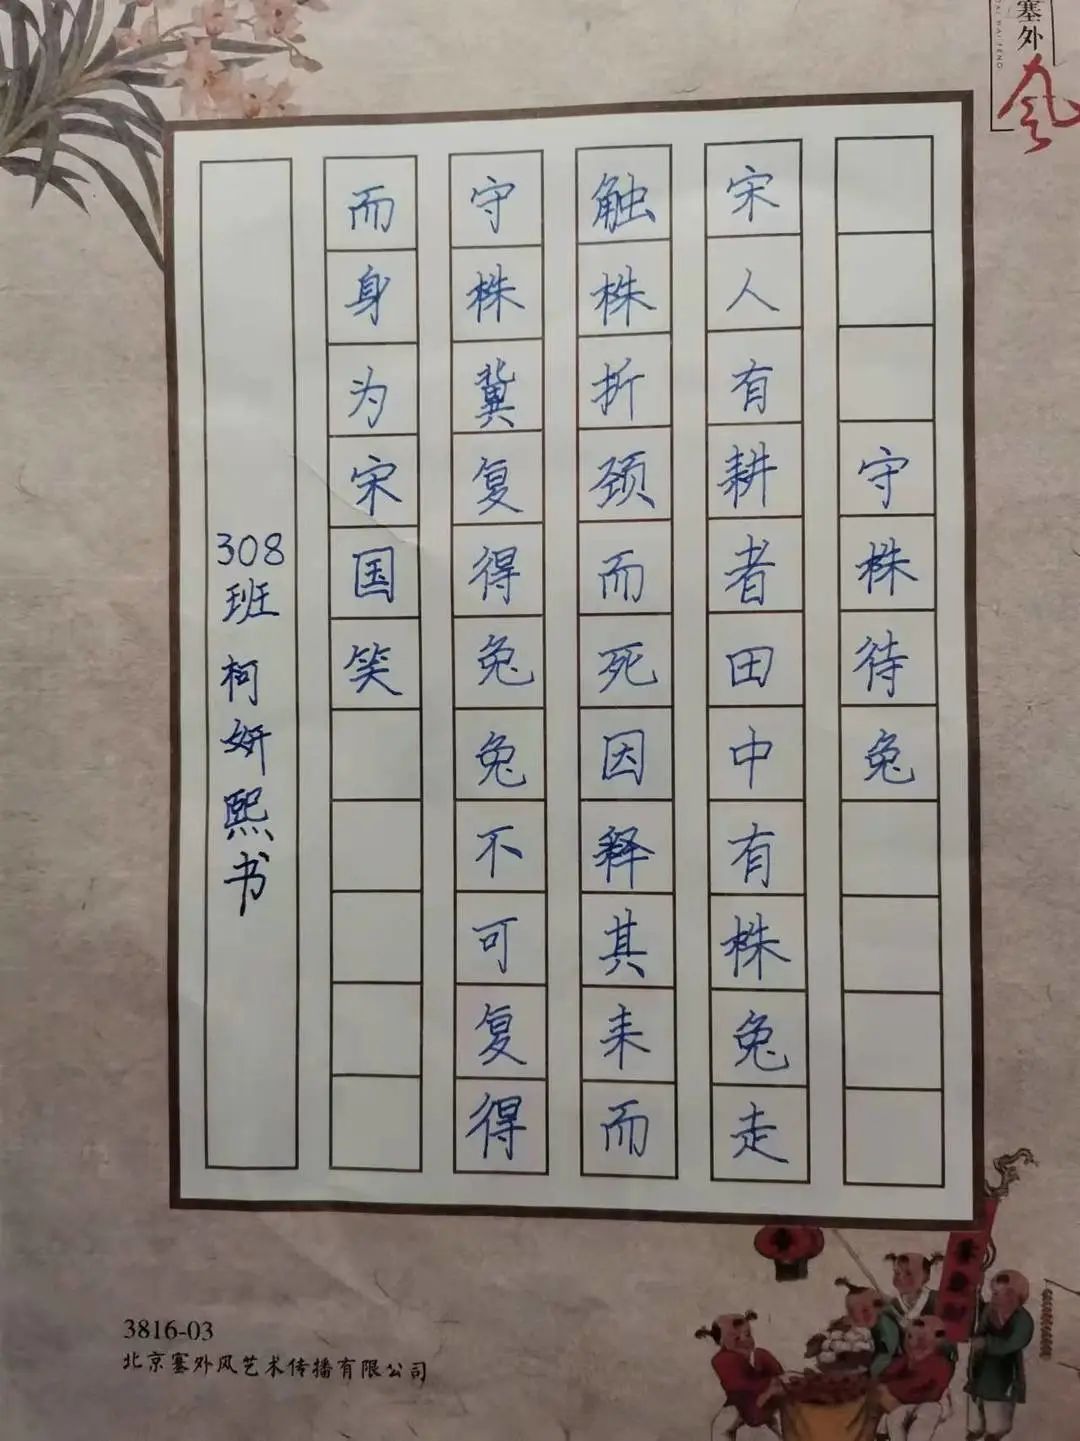 塞外
风
守株待兔
宋人有耕者田中有株兔走
触株折颈而死因释其耒而
守株冀复得兔兔不可复得
而身为宋国笑
308班 柯妍熙书
3816-03
北京塞外风艺术传播有限公司